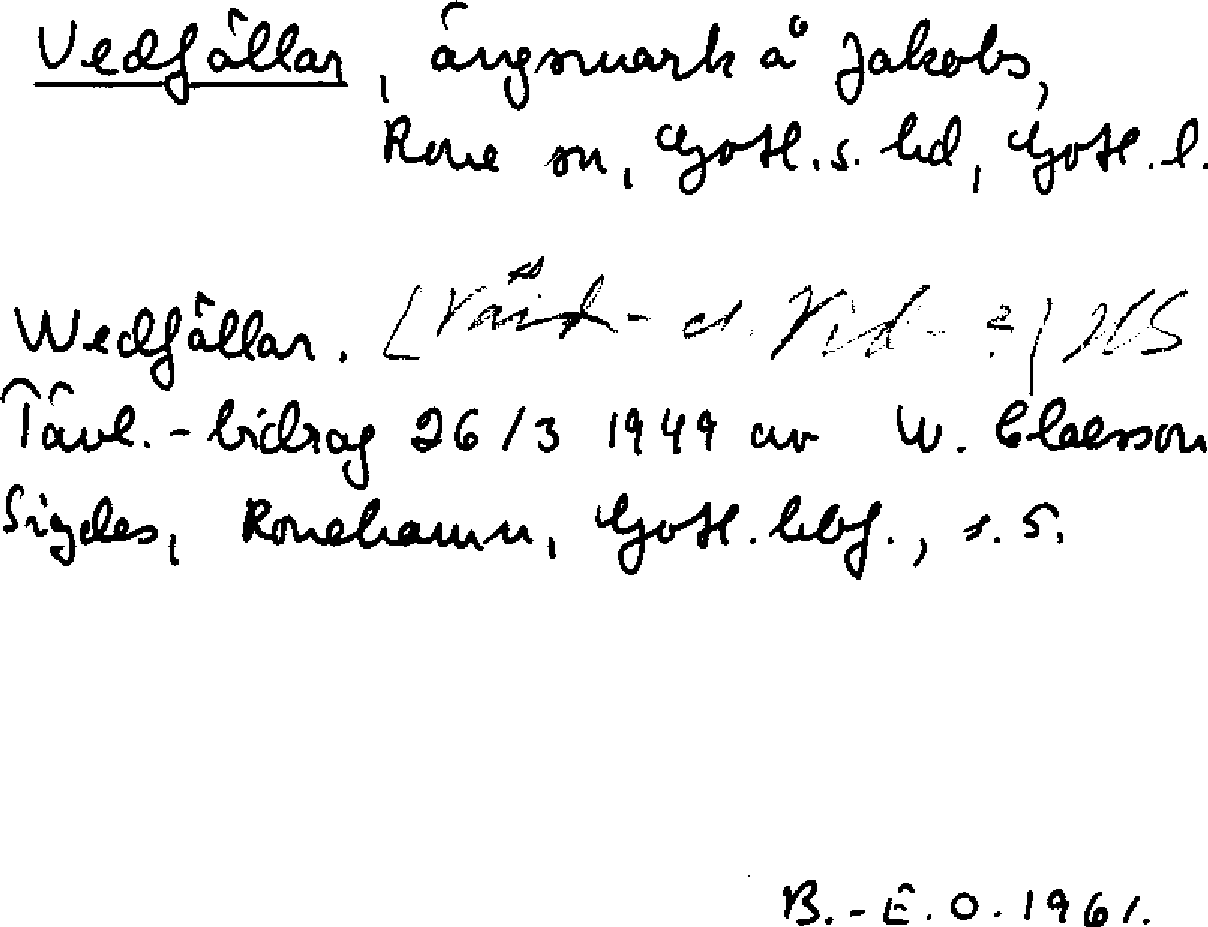 Vedfällar, ängsmark å Jakobs,
Rone sn, Gotl. s. hd, Gotl. l.
Wedfällar. [ Vid- ?]
Tävl.-bidrag 26/3 1949 av W. Claesson
Sigdes, Ronehamn, Gotl. hbf., s. 5.
B.-E.O. 1961.